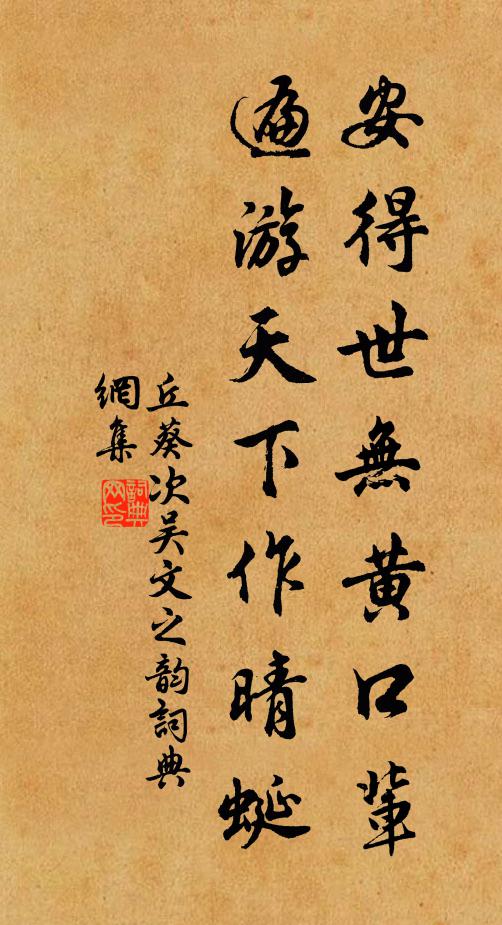 安得世無黄口輩
遍游天下作晴蜒
丘葵次吴文之韵詞典
網集
詞典網印